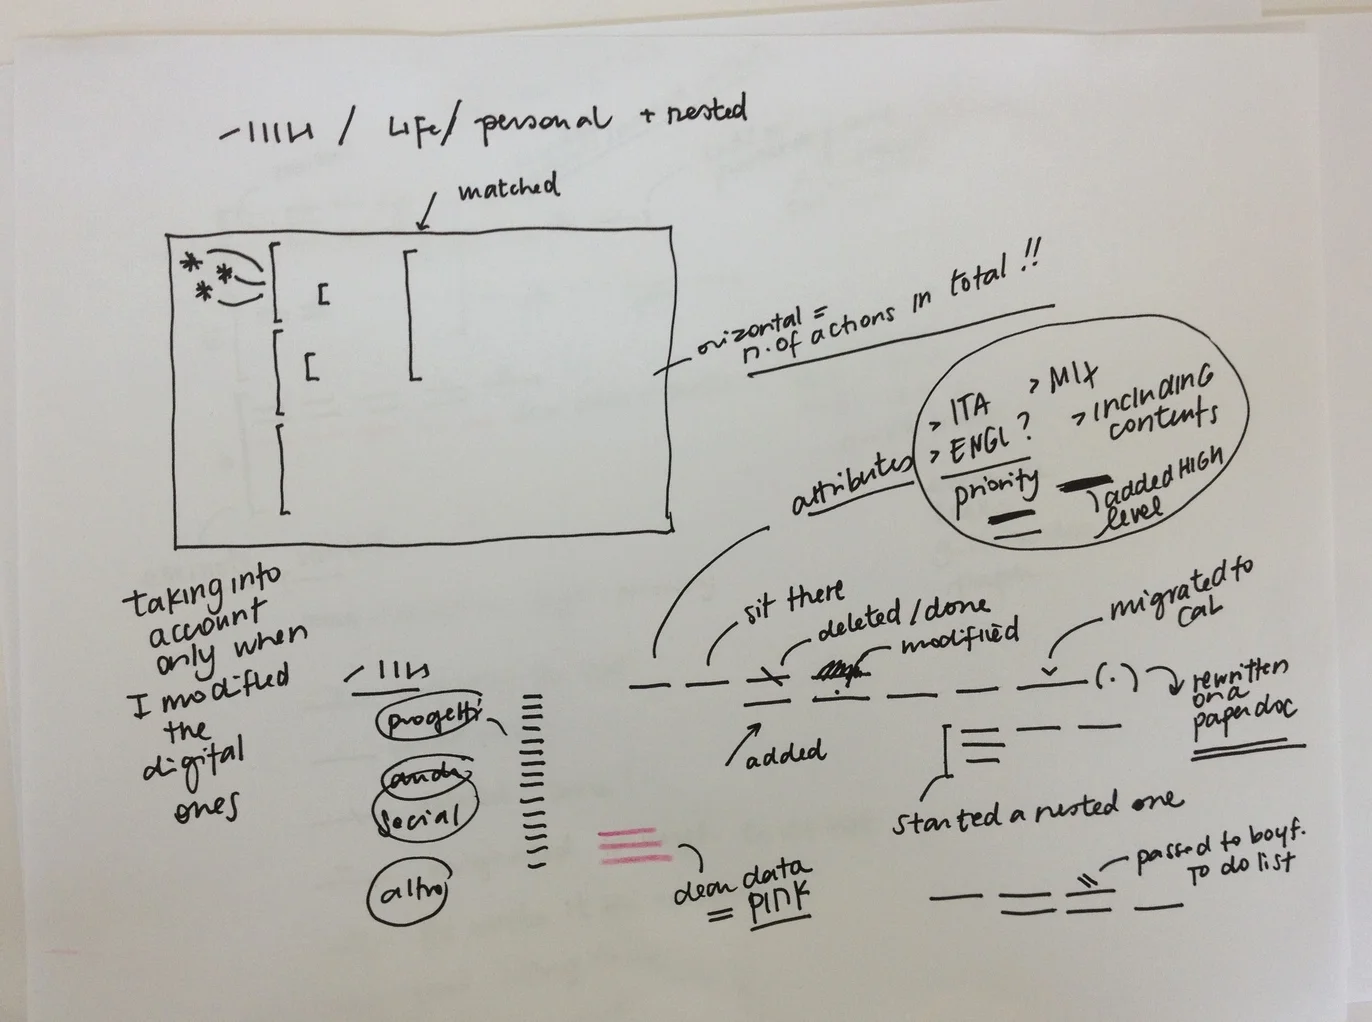 / Life / personal + nested
matched
orizontal =
n. of actions in total !!
> ITA
> MIX
> ENGL ?
> including
contents
priority
added HIGH
level
attributes
taking into
account
only when
I modified
the
digital
ones
progetti
social
altro
sit there
deleted / done
modified
migrated to
cal
added
(.)
rewritten
on a
paper doc
started a nested one
passed to boyf.
To do list
dear data
= PINK